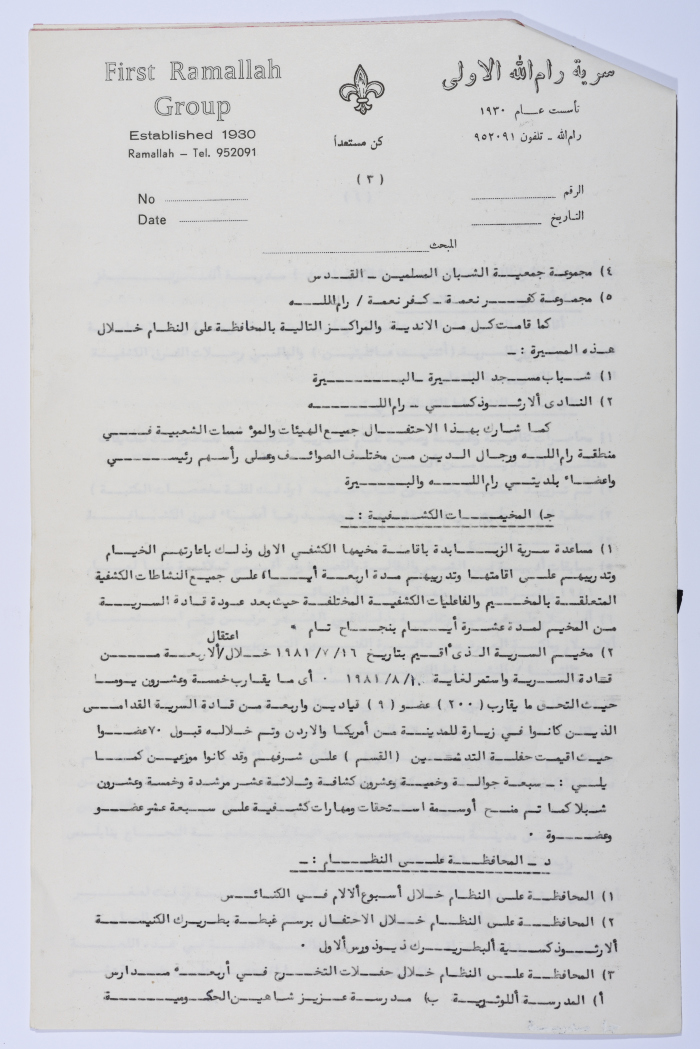 First Ramallah
Group
Established 1930
Ramallah - Tel. 952091
كن مستعداً
سرية رام الله الاولى
تأسست عام ١٩٣٠
رام الله - تلفون ٩٥٢٠٩١
( ٣ )
No
Date
الرقم
التاريخ
المبحث
٤) مجموعة جمعية الشبان المسلمين - القدس
٥) مجموعة كفر نعمة - كفر نعمة / رام الله
كما قامت كل من الاندية والمراكز التالية بالمحافظة على النظام خلال
هذه المسيرة : -
١) شباب مسجد البيرة - البيرة
٢) النادى ألارثوذكسي - رام الله
كما شارك بهذا الاحتفال جميع الهيئات والمؤسسات الشعبية في
منطقة رام الله ورجال الدين من مختلف الطوائف وعلى رأسهم رئيسي
واعضاء بلديتي رام الله والبيرة
جـ) المخيمات الكشفية : -
١) مساعدة سرية الزبابدة باقامة مخيمها الكشفي الاول وذلك باعارتهم الخيام
وتدريبهم على اقامتها وتدريبهم مدة اربعة أيام على جميع النشاطات الكشفية
المتعلقة بالمخيم والفاعليات الكشفية المختلفة حيث بعد عودة قادة السرية
من المخيم لمدة عشرة أيام بنجاح تام .
٢) مخيم السرية الذى أقيم بتاريخ ١٦ /٧/ ١٩٨١ خلال / اعتقال ألاربعة من
قادة السرية واستمر لغاية ١٠/ ٨/ ١٩٨١ . أى ما يقارب خمسة وعشرون يوما
حيث التحق ما يقارب (٢٠٠) عضو (٩) قياديين واربعة من قادة السرية القدامى
الذين كانوا في زيارة للمدينة من أمريكا والاردن وتم خلاله قبول ٧٠ عضوا
حيث اقيمت حفلة التدشين (القسم ) على شرفهم وقد كانوا موزعين كما
يلي : - سبعة جوالة وخمسة وعشرون كشافة وثلاثة عشر مرشدة وخمسة وعشرون
شبلا كما تم منح أوسمة استحقاق ومهارات كشفية على سبعة عشر عضو
وعضوة .
د - المحافظة على النظام : -
١) المحافظة على النظام خلال أسبوع ألالام في الكنائس
٢) المحافظة على النظام خلال الاحتفال برسم غبطة بطريرك الكنيسة
ألارثوذكسية ألبطريرك ذيودورس ألاول .
٣) المحافظة على النظام خلال حفلات التخرج في أربعة مدارس
أ) المدرسة أللوثرية ب) مدرسة عزيز شاهين الحكومية